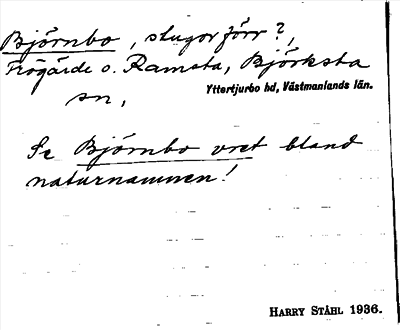 Björnbo, stugor förr?,
Frögärde o. Ramsta, Björksta
sn, Yttertjurbo hd, Västmanlands län.
Se Björnbo vret bland
naturnamnen!
HARRY STÅHL 1936.